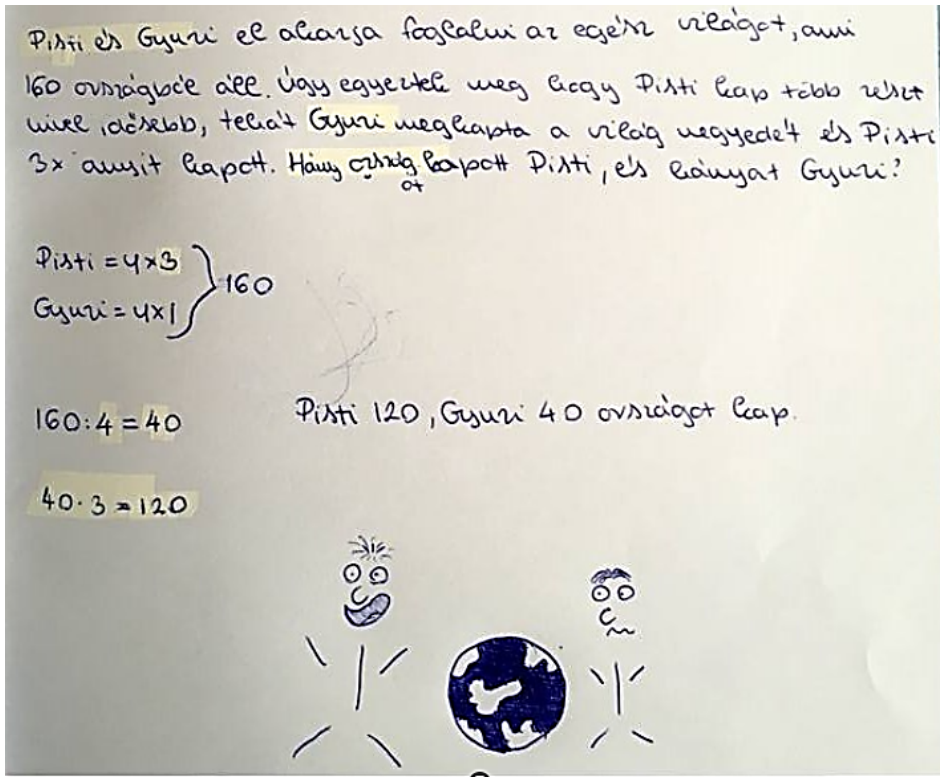 Pisti és Gyuri el akarja foglalni az egész világot, ami
160 országból áll. Úgy egyeztek meg hogy Pisti kap több részt
mivel idősebb, tehát Gyuri megkapta a világ negyedét és Pisti
3x annyit kapott. Hány országot kapott Pisti, és hányat Gyuri?
Pisti = 4x3
Gyuri = 4x1
160
160:4 = 40
Pisti 120, Gyuri 40 országot kap.
40·3 = 120